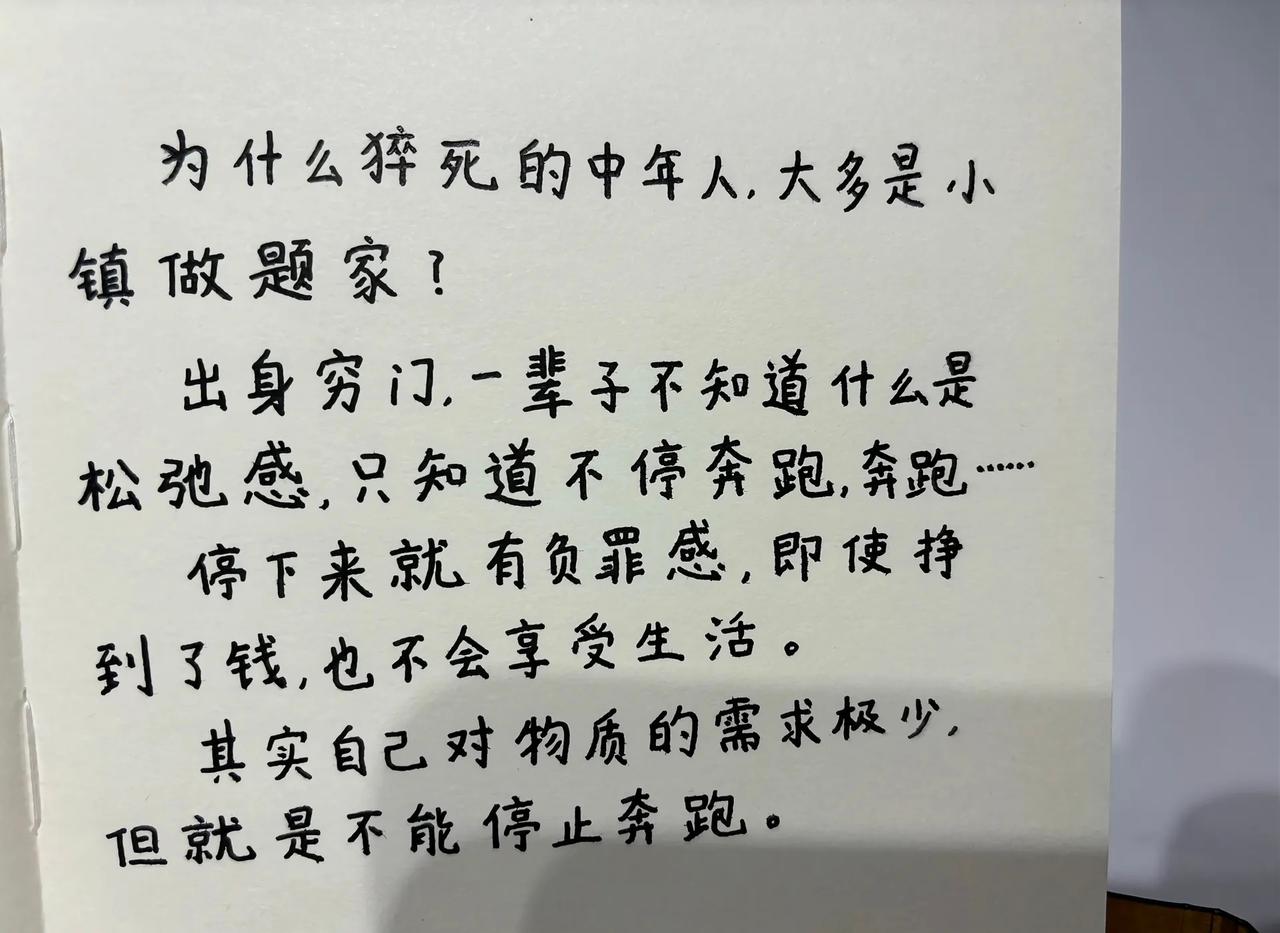 为什么猝死的中年人,大多是小
镇做题家?
出身穷门,一辈子不知道什么是
松弛感,只知道不停奔跑,奔跑……
停下来就有负罪感,即使挣
到了钱,也不会享受生活。
其实自己对物质的需求极少,
但就是不能停止奔跑。